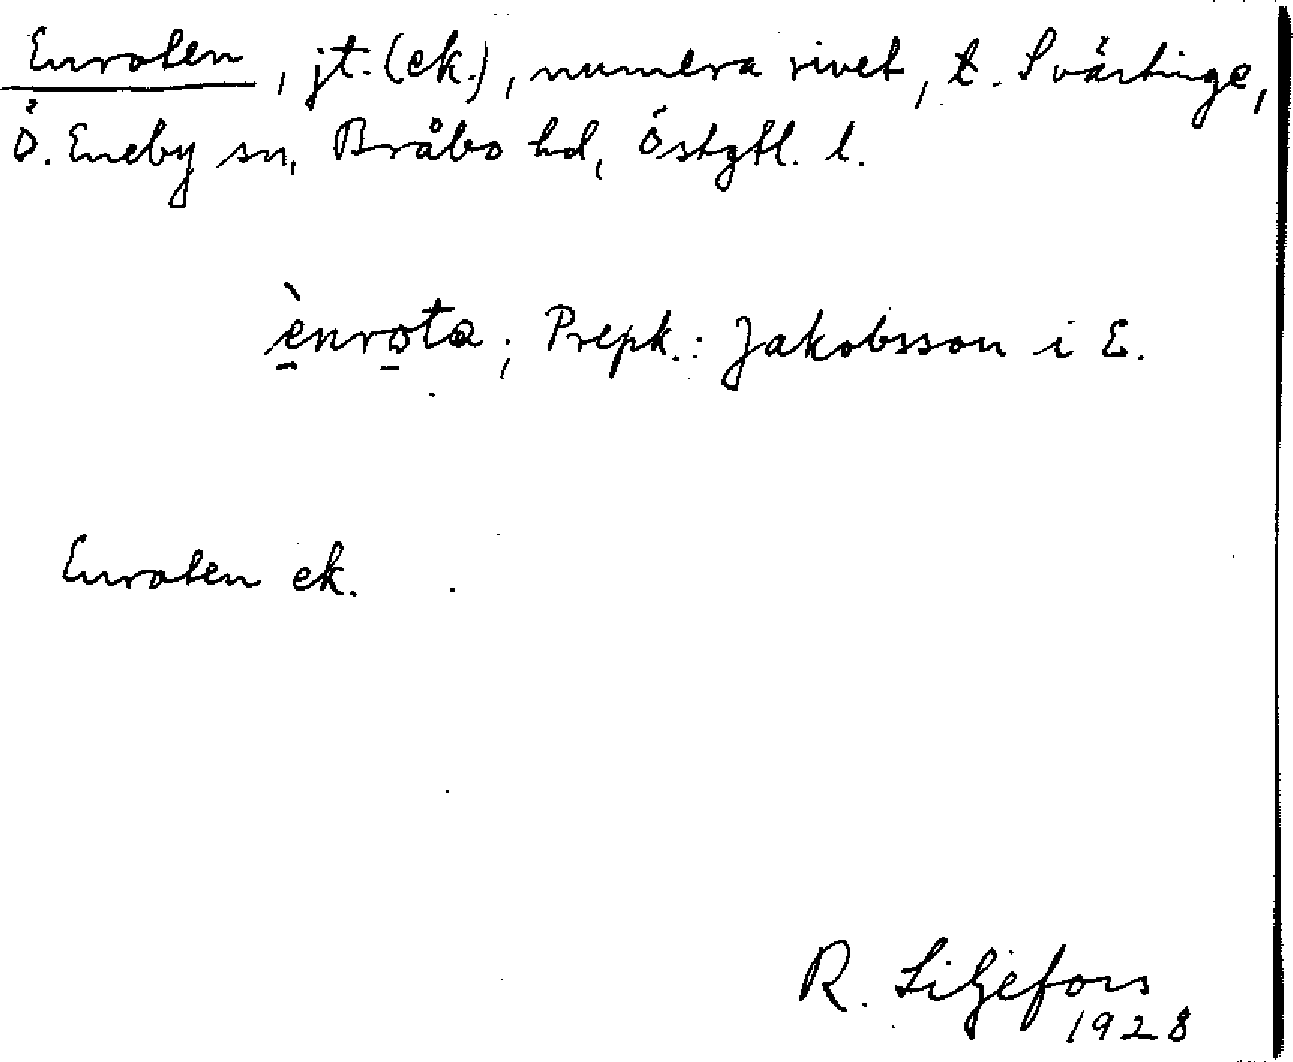 Enroten, jt. (ek.), numera rivet, t. Svärtinge,
Ö. Eneby sn, Bråbo hd, Östgtl. l.
ènrota; Prepk.: Jakobsson i E.
Enroten ek.
R. Liljefors
1928